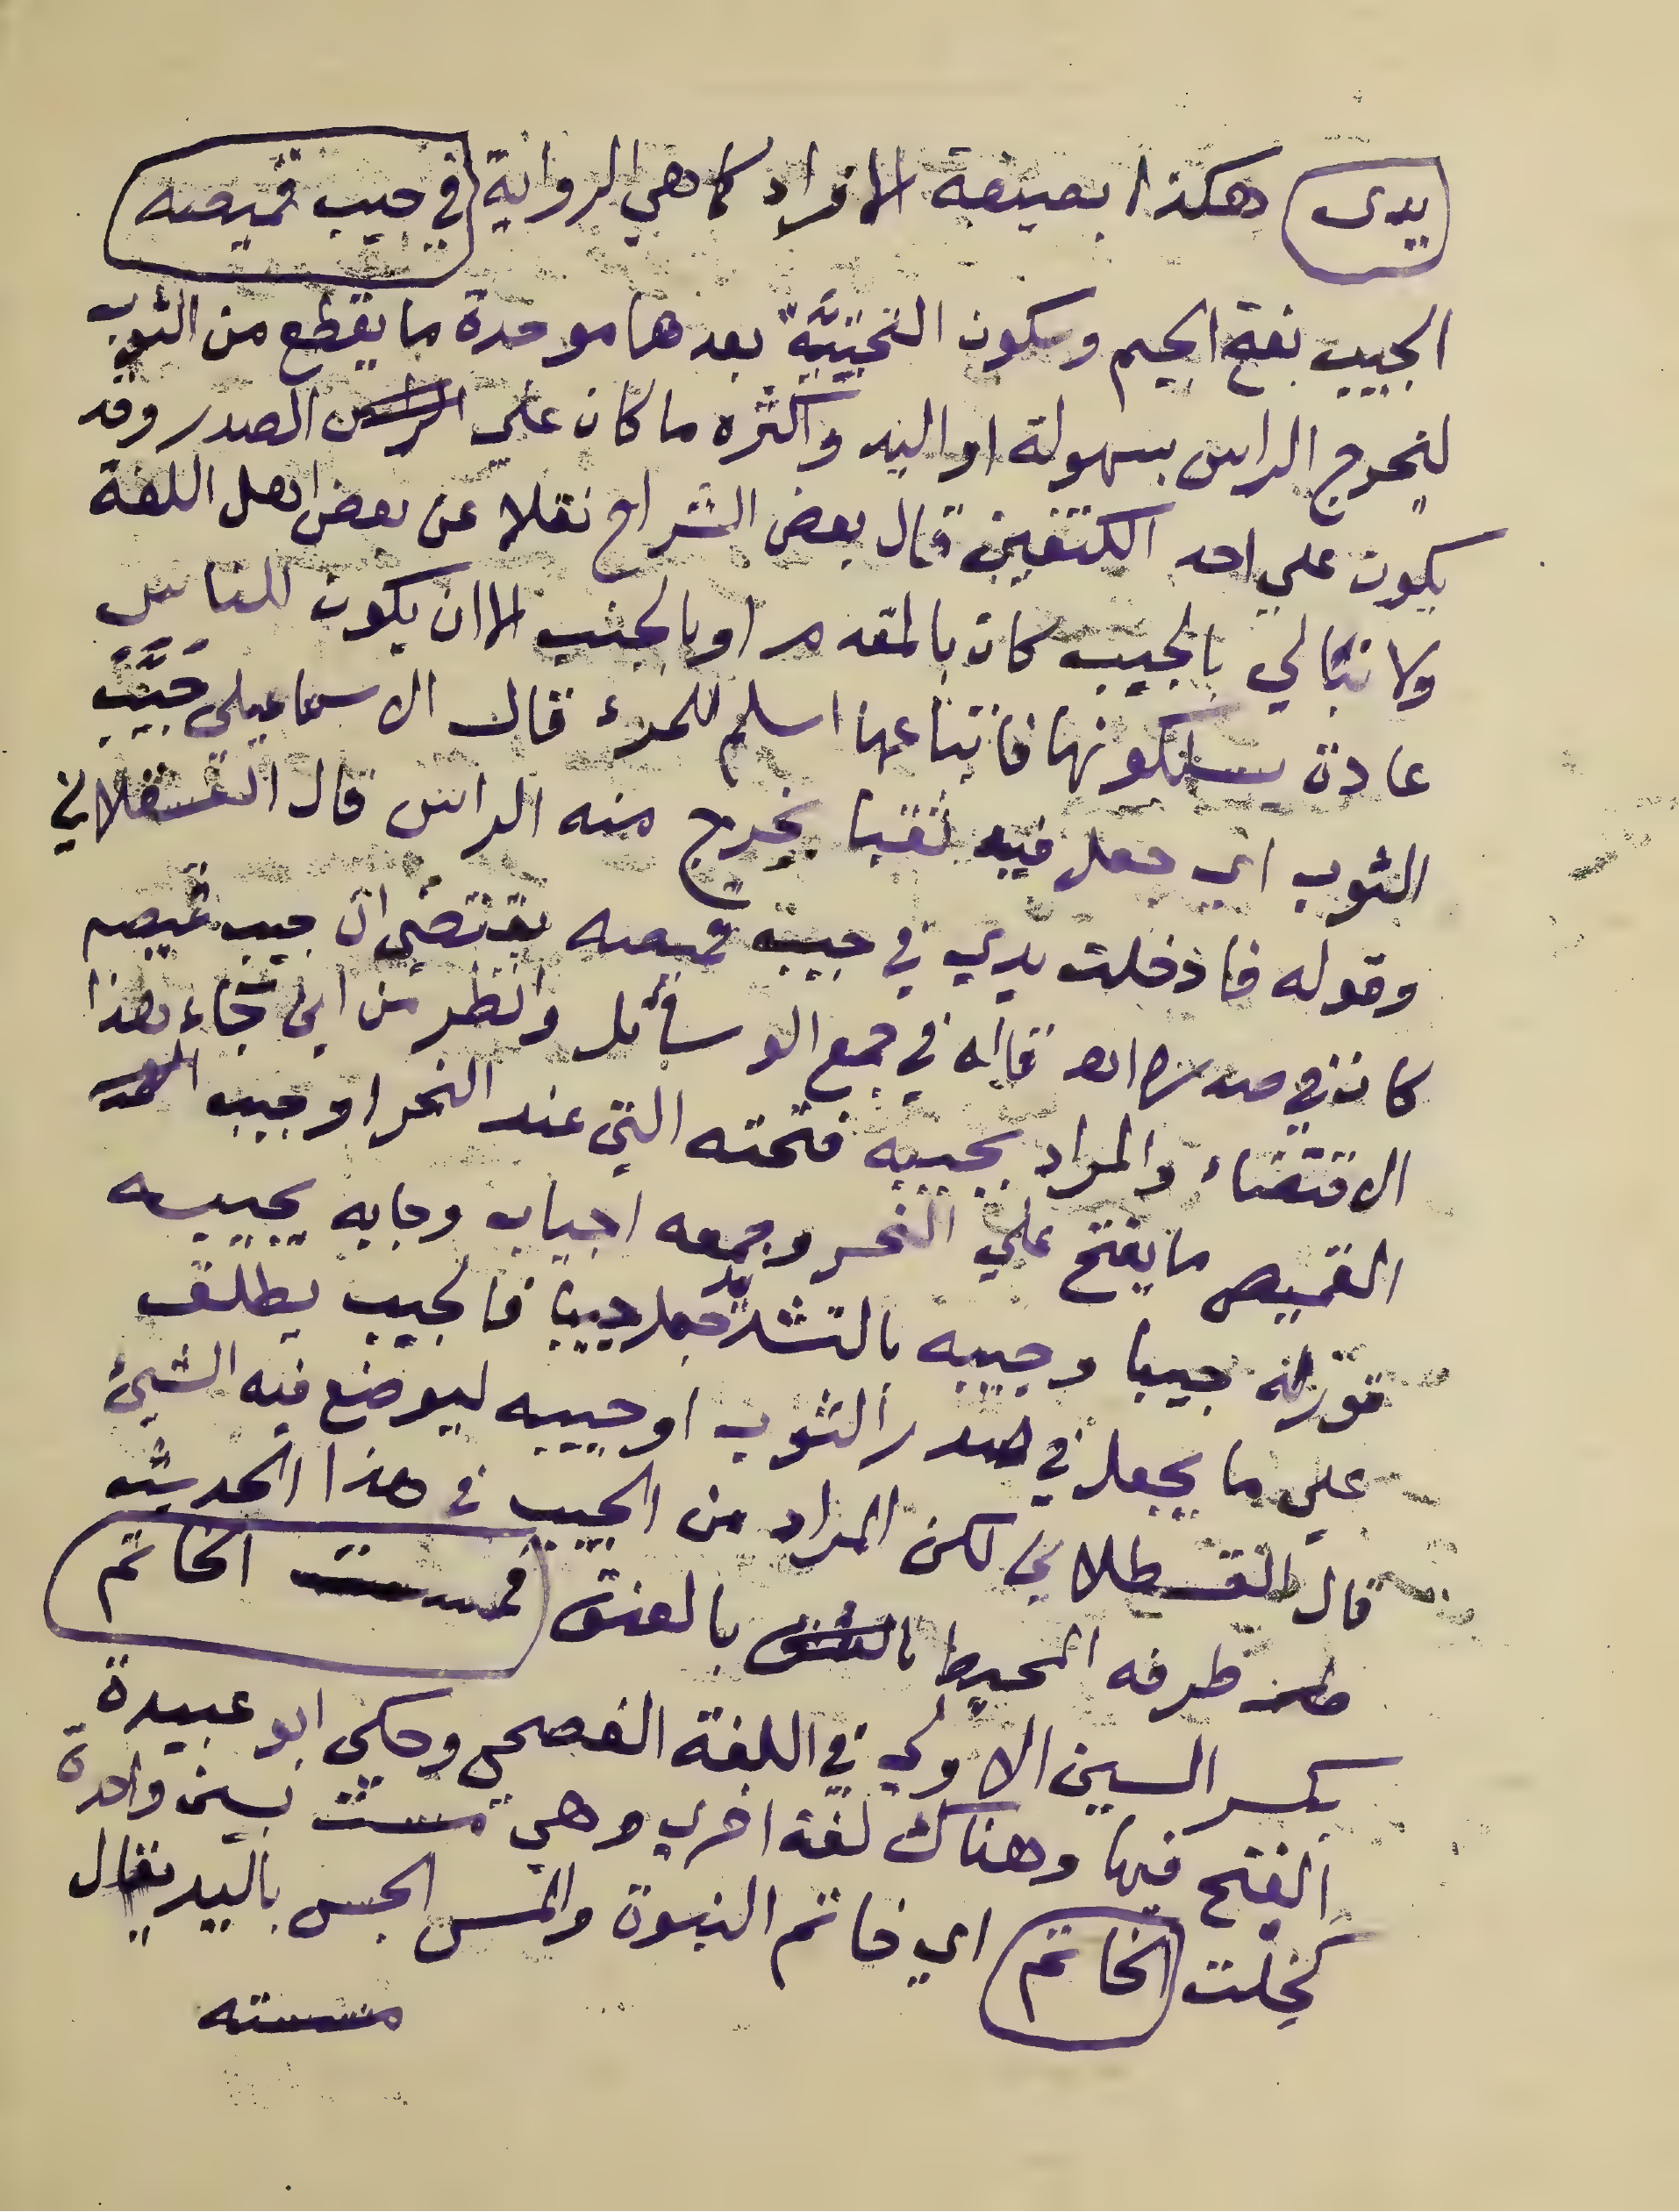 يدى هكذا بصيغة الافراد كما هي الرواية في جيب قميصه
الجيب بفتح الجيم وسكون التحتيَّة بعدها موحدة ما يقطع من الثوب
ليخرج الراس بسهولة او اليد واكثره ما كان علي الراس الصدر وقد
يكون علي احد الكتفين قال بعض الشراح نقلا عن بعض اهل اللغة
ولا نبالي بالجيب كان بالمقدم او بالجنب الا ان يكون للناس
عادة يسلكونها فاتباعها اسلم للمرء قال الاسماعيلي جَيَّبَ
الثوب اي جعل فيه ثقبا يخرج منه الراس قال العسقلاني
وقوله فادخلت يدي في جيب قميصه يقتضي ان جيب قميصه
كان في صدره اه قاله في جمع الوسائل وانظر من اين جاء هذا
الاقتضاء والمراد بجيبه فتحته التي عند النحر او جيب
القميص ما يفتح علي النحر وجمعه اجياب وجابه يجيبه
قورله جيبا وجيبه بالتشديد جعل جيبا فالجيب يطلق
علي ما يجعل في صدر الثوب او جيبه ليوضع فيه الشيئ
قال القسطلاني لكن المراد من الجيب في هذا الحديث
طرفه المحيط بالعنق فمسست الخاتم
بكسر السين الاولي في اللغة الفصحي وحكي ابو عبيدة
الفتح فيها وهناك لغة اخري وهي مست بسين واحدة
كخلت الخاتم اي خاتم النبوة والمس الجس باليد يقال
مسسته